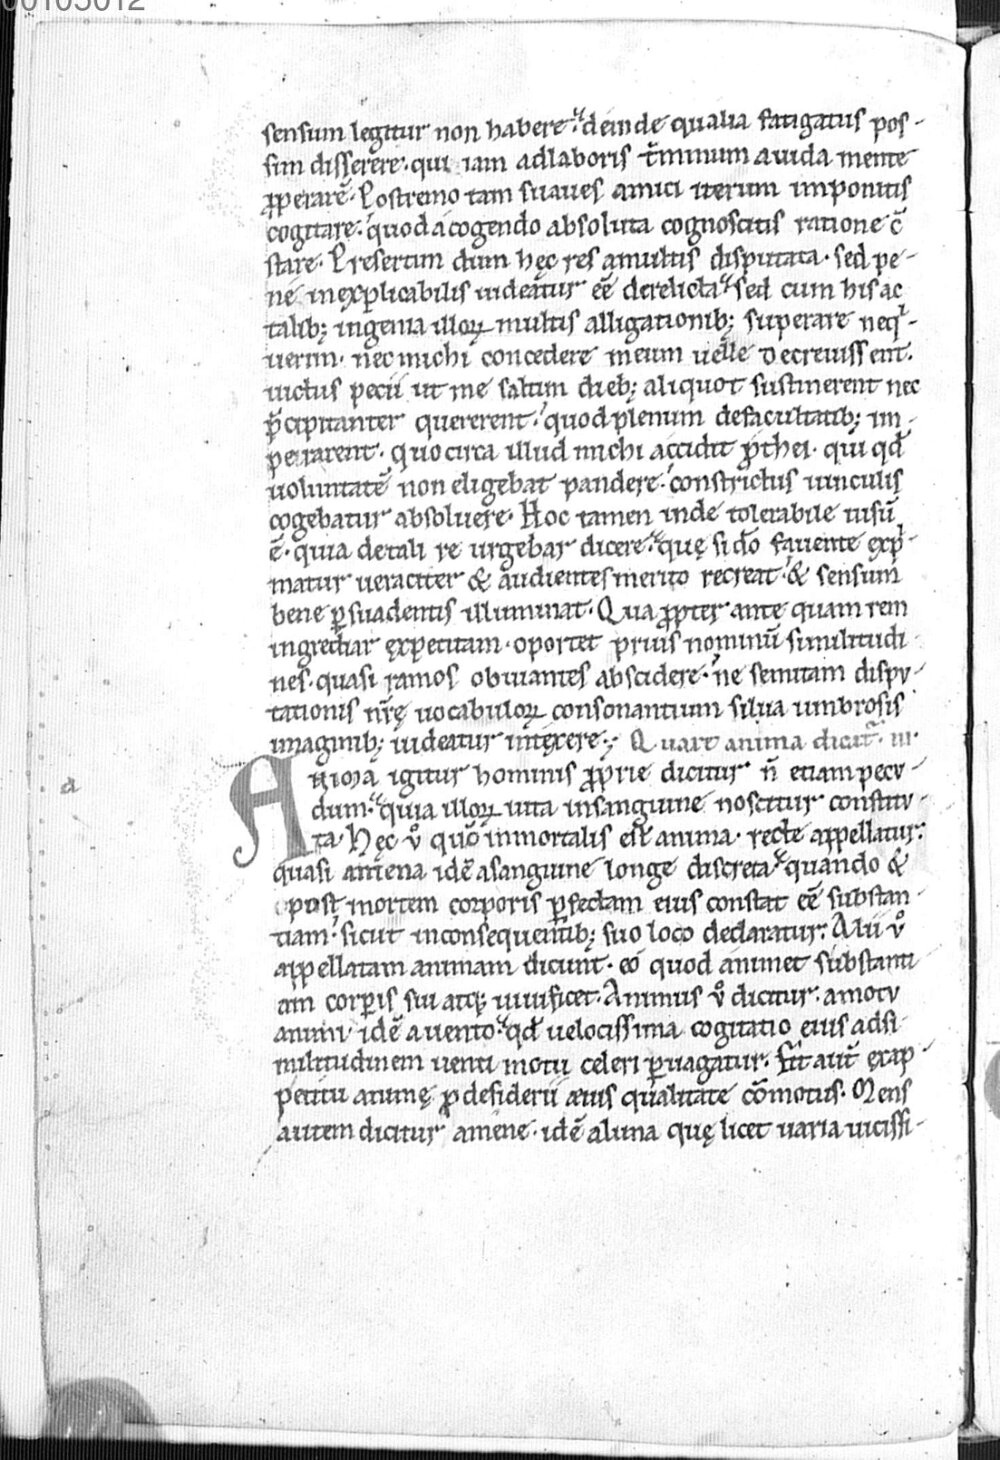 00105012
sensum legitur non habere. deinde qualia fatigatus pos-
sim disserere. qui iam ad laboris t̄minum auida mente
ꝓperare̅. Postremo tam suaues amici iterum imponitis
cogitare. quod a cogendo absoluta cognoscitis ratione c̄
stare. Presertim dum hęc res a multis disputata. sed pe-
ne inexplicabilis uideatur ee̅ derelicta. sed cum his ac
talib; ingenia illoꝝ multis alligationib; superare neqͥ-
uerim. nec michi concedere meum uelle decreuissent.
uictus pecii ut me saltim dieb; aliquot sustinerent nec
p̄cipitanter quererent. quod plenum de facultatib; im-
petrarent. quo circa illud michi accidit ꝓthei. qui qd̄
uoluntate̅ non eligebat pandere. constrictus uinculis
cogebatur absoluere. Hoc tamen inde tolerabile uisu̅
e̅. quia de tali re urgebar dicere. quę si do̅ fauente exp̄-
matur ueraciter & audientes merito recreat. & sensum
bene ꝑsuadentis illuminat. Qua ꝓpter ante quam rem
ingrediar expetitam. oportet prius nominu̅ similitudi-
nes. quasi ramos obuiantes abscidere. ne semitam dispu-
tationis nr̄ę uocabuloꝝ consonantium silua umbrosis
imaginib; uideatur intexere. Quare anima dicit̄. iii.
Anima igitur hominis ꝓprie dicitur n̄ etiam pecu-
dum. quia illoꝝ uita in sanguine noscitur constitu-
ta. Hęc u͛o quo̅ inmortalis est anima. recte appellatur.
quasi anıena ide̅ a sanguine longe discreta. quando &
post mortem corporis ꝑfectam eius constat ee̅ substan-
tiam. sicut in consequentib; suo loco declaratur. Alii u͛o
appellatam animam dicunt. eo quod animet substanti-
am corꝑis sui atq; uiuificet. Animus u͛o dicitur. a motu
animi ide̅ a uento. qd̄ uelocissima cogitatio eius adsi-
militudinem uenti motu celeri ꝑuagatur. fit aut̄ ex ap-
petitu animę ꝓ desiderii eius qualitate co̅motus. Mens
autem dicitur amene. ide̅ a luna quę licet uaria uicissi-
a